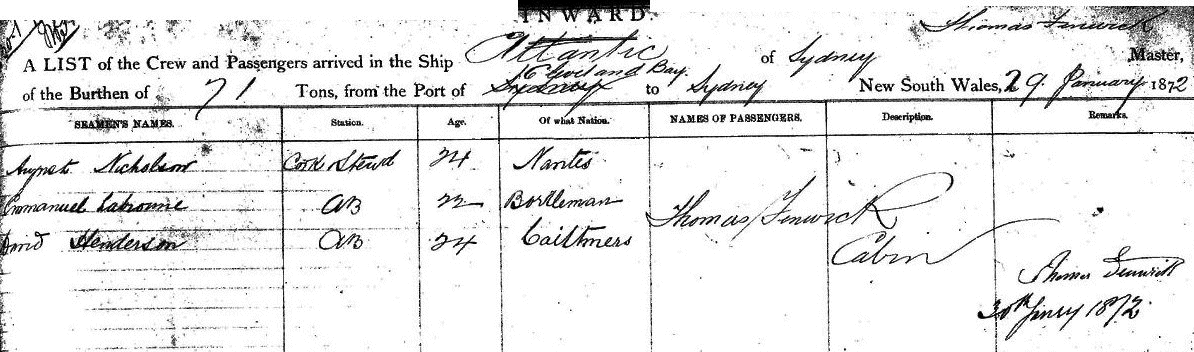 INWARD.
Thomas Fenwick
A LIST of the Crew and Passengers arrived in the Ship Atlantic of Sydney Master,
of the Burthen of 71 Tons, from the Port of Sydney Cleveland Bay. to Sydney New South Wales, 29. January 1872
SEAMEN'S NAMES. Station. Age. Of what Nation. NAMES OF PASSENGERS. Description. Remarks.
August Nicholson Cook & Stewd 24 Nantes
Emmanuel AB 22 Thomas Fenwick
David Henderson AB 24 Cabin
Thomas Fenwick
30th 1872.